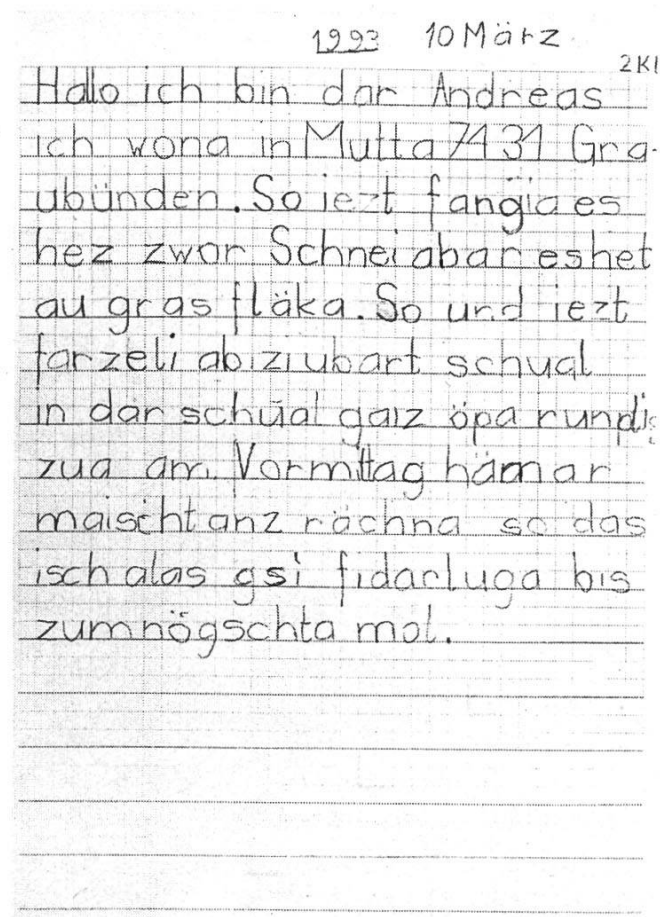 1993 10 März
2Kl
Hallo ich bin dar Andreas
ich wona in Mutta 7131 Gra-
ubünden. So iezt fangia es
hez zwor Schnei abar es het
au gras fläka. So und iezt
farzeli abizi ubart schual
in dar schual gaiz öpa rundis
zua am Vormittag hämar
maischtanz rächna so das
isch alas gsi fidarluga bis
zum nögschta mol.